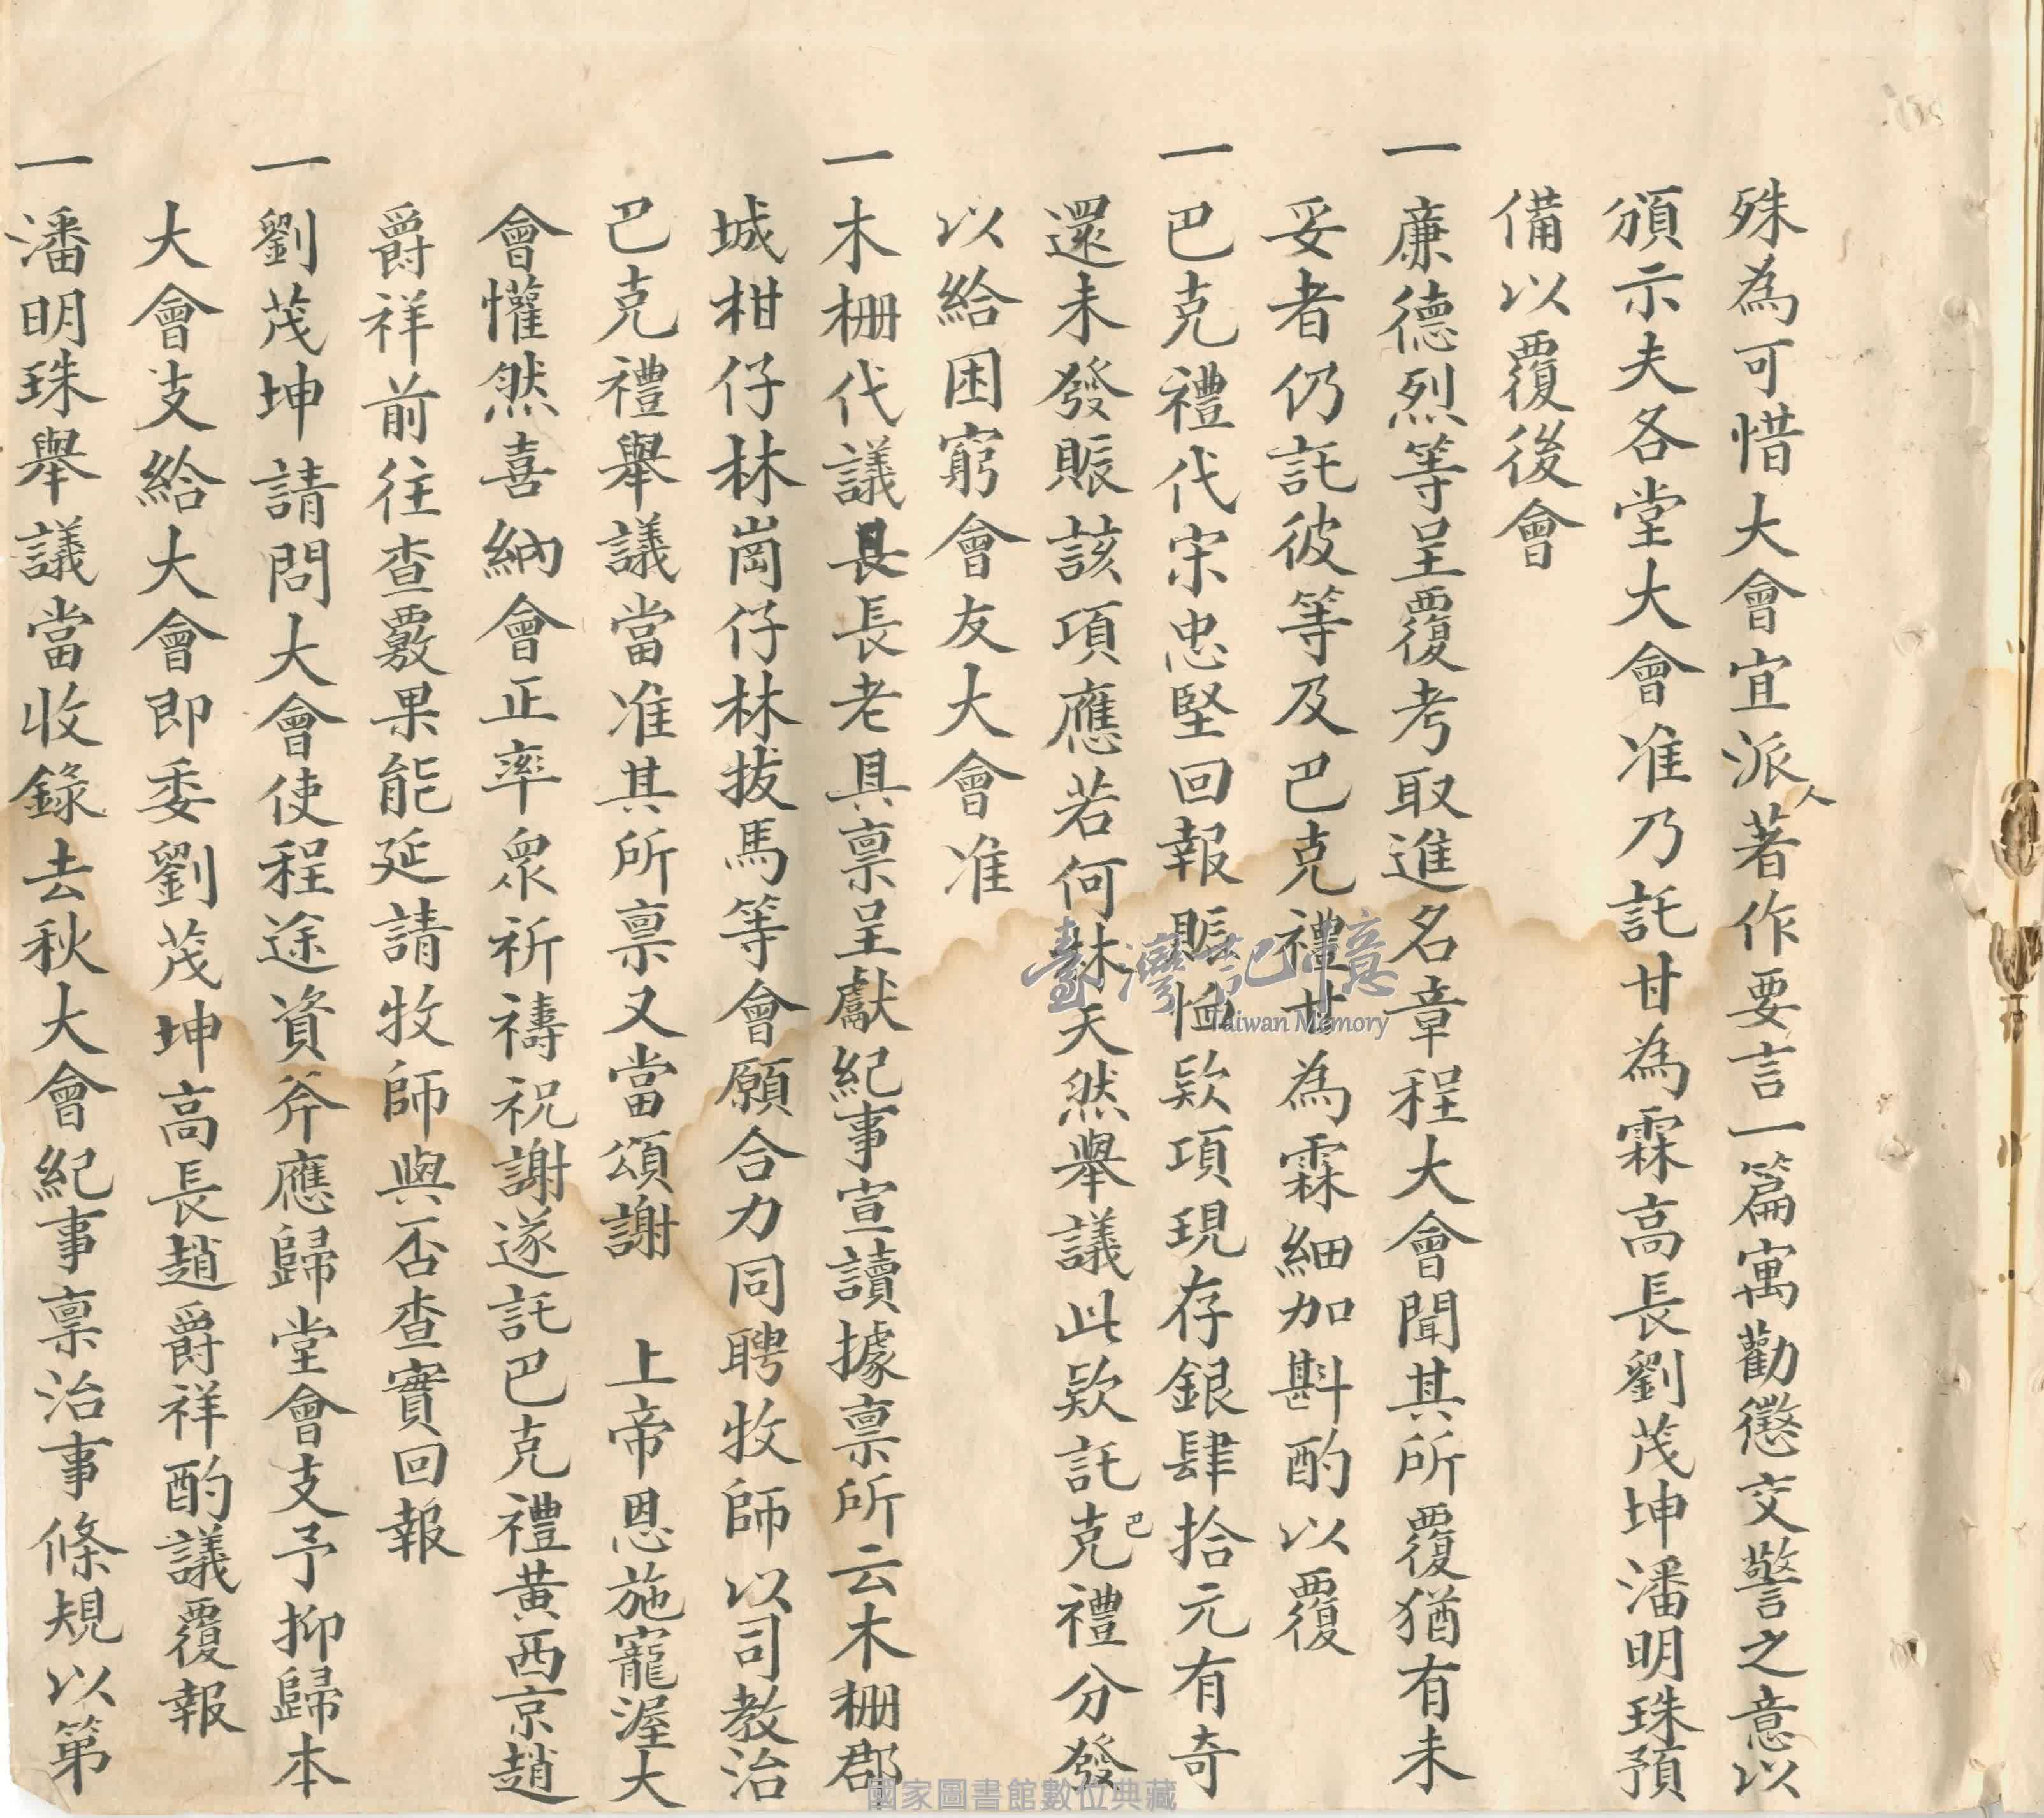 殊為可惜大會宜派人著作要言一篇寓勸懲交警之意以
頒示夫各堂大會准乃託甘為霖高長劉茂坤潘明珠預
備以覆後會
一廉德烈等呈覆考取進名章程大會聞其所覆猶有未
妥者仍託彼等及巴克禮甘為霖細加斟酌以覆
一巴克禮代宋忠堅回報賑恤欵項現存銀肆拾元有奇
還未發賑該項應若何林天然舉議此欵託巴克禮分發
以給困窮會友大會准
一木柵代議長長老具禀呈獻紀事宣讀據禀所云木柵郡
城柑仔林崗仔林拔馬等會願合力同聘牧師以司教治
巴克禮舉議當准其所禀又當頌謝 上帝恩施寵渥大
會懽然喜納會正率眾祈禱祝謝遂託巴克禮黃西京趙
爵祥前往查覈果能延請牧師與否查實回報
一劉茂坤請問大會使程途資斧應歸堂會支予抑歸本
大會支給大會即委劉茂坤高長趙爵祥酌議覆報
一潘明珠舉議當收錄去秋大會紀事禀治事條規以第
臺灣記憶
Taiwan Memory
國家圖書館數位典藏